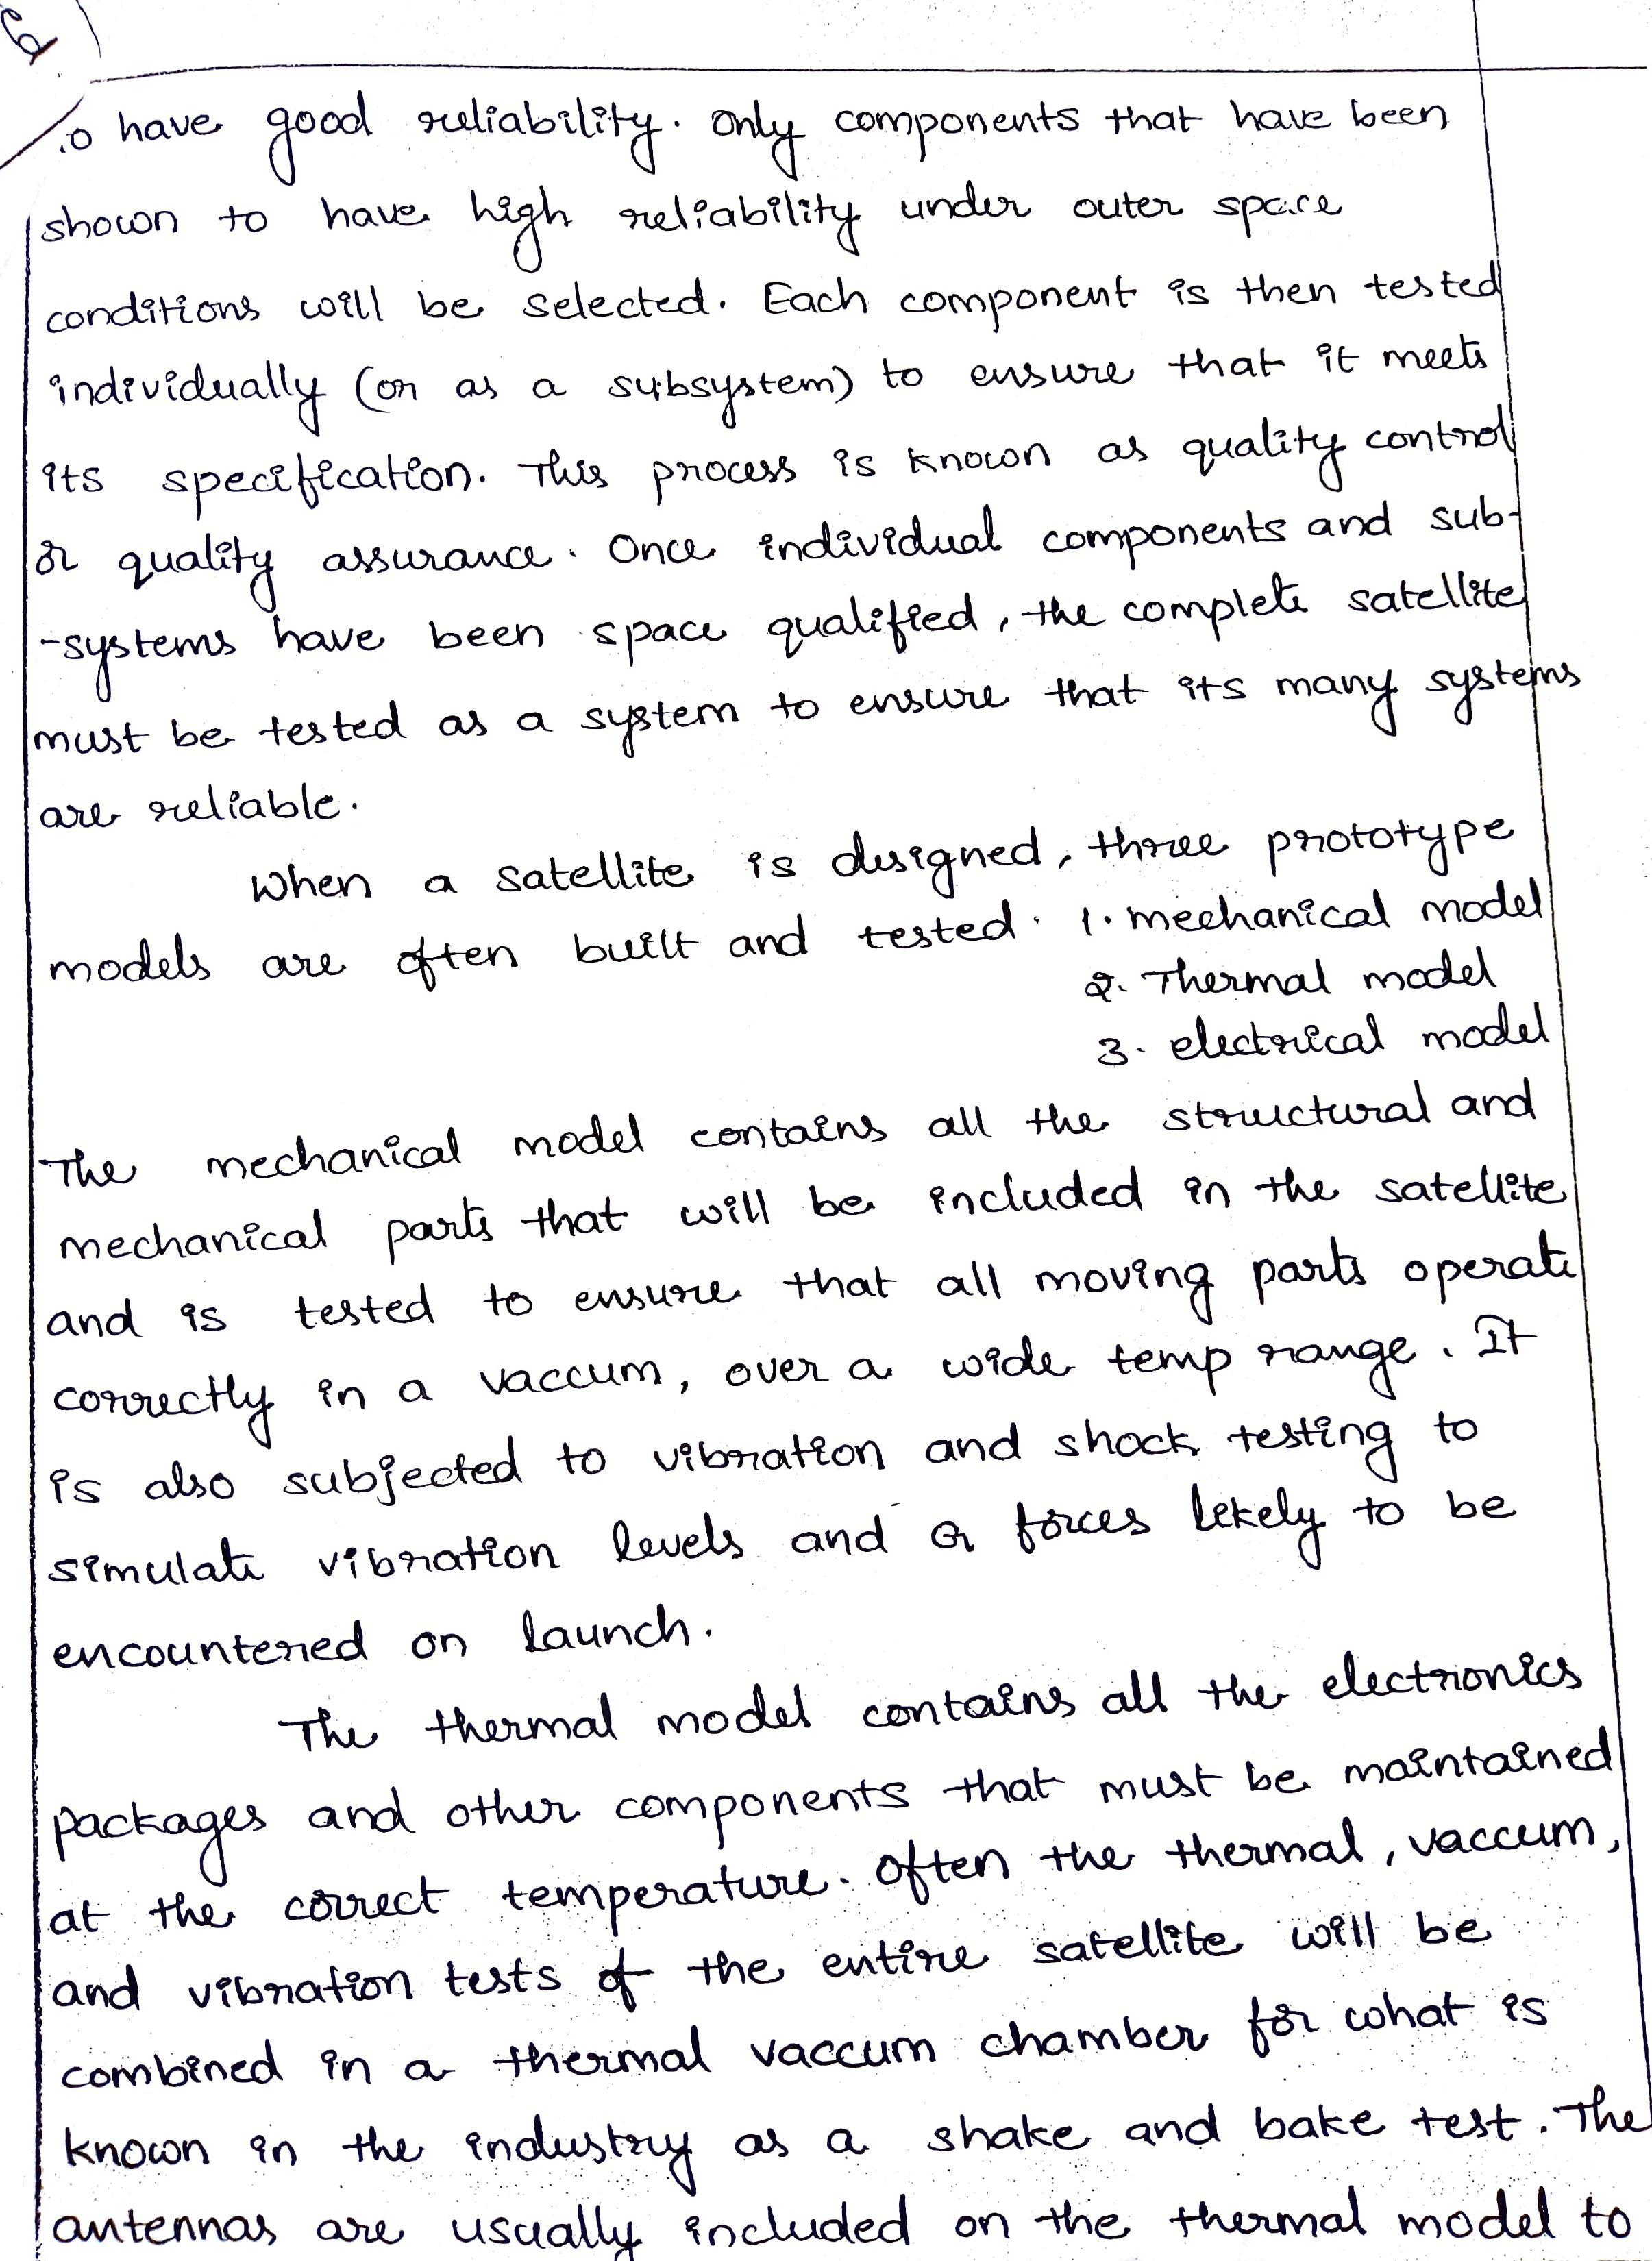 to have good reliability. Only components that have been
shown to have high reliability under outer space
conditions will be selected. Each component is then tested
individually (or as a subsystem) to ensure that it meets
its specification. This process is known as quality control
or quality assurance. Once individual components and sub-
-systems have been space qualified, the complete satellite
must be tested as a system to ensure that its many systems
are reliable.
When a satellite is designed, three prototype
models are often built and tested. 1. mechanical model
2. Thermal model
3. electrical model
The mechanical model contains all the structural and
mechanical parts that will be included in the satellite
and is tested to ensure that all moving parts operate
correctly in a vaccum, over a wide temp range. It
is also subjected to vibration and shock testing to
simulate vibration levels and G forces likely to be
encountered on launch.
The thermal model contains all the electronics
packages and other components that must be maintained
at the correct temperature. Often the thermal, vaccum,
and vibration tests of the entire satellite will be
combined in a thermal vaccum chamber for what is
known in the industry as a shake and bake test. The
antennas are usually included on the thermal model to